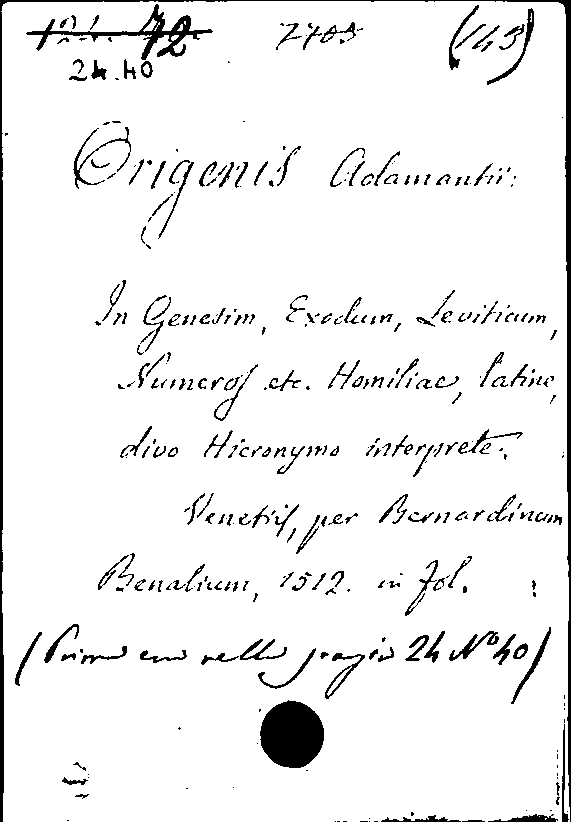 124. 72. 7703 (143)
24.40
Origenis Adamantii:
In Genesim, Exodum, Leviticum,
Numeros etc. Homiliae, latine,
divo Hieronymo interprete.
Venetiis, per Bernardinum
Benalium, 1512. in fol.
(Prima era nello 24 Nº 40)